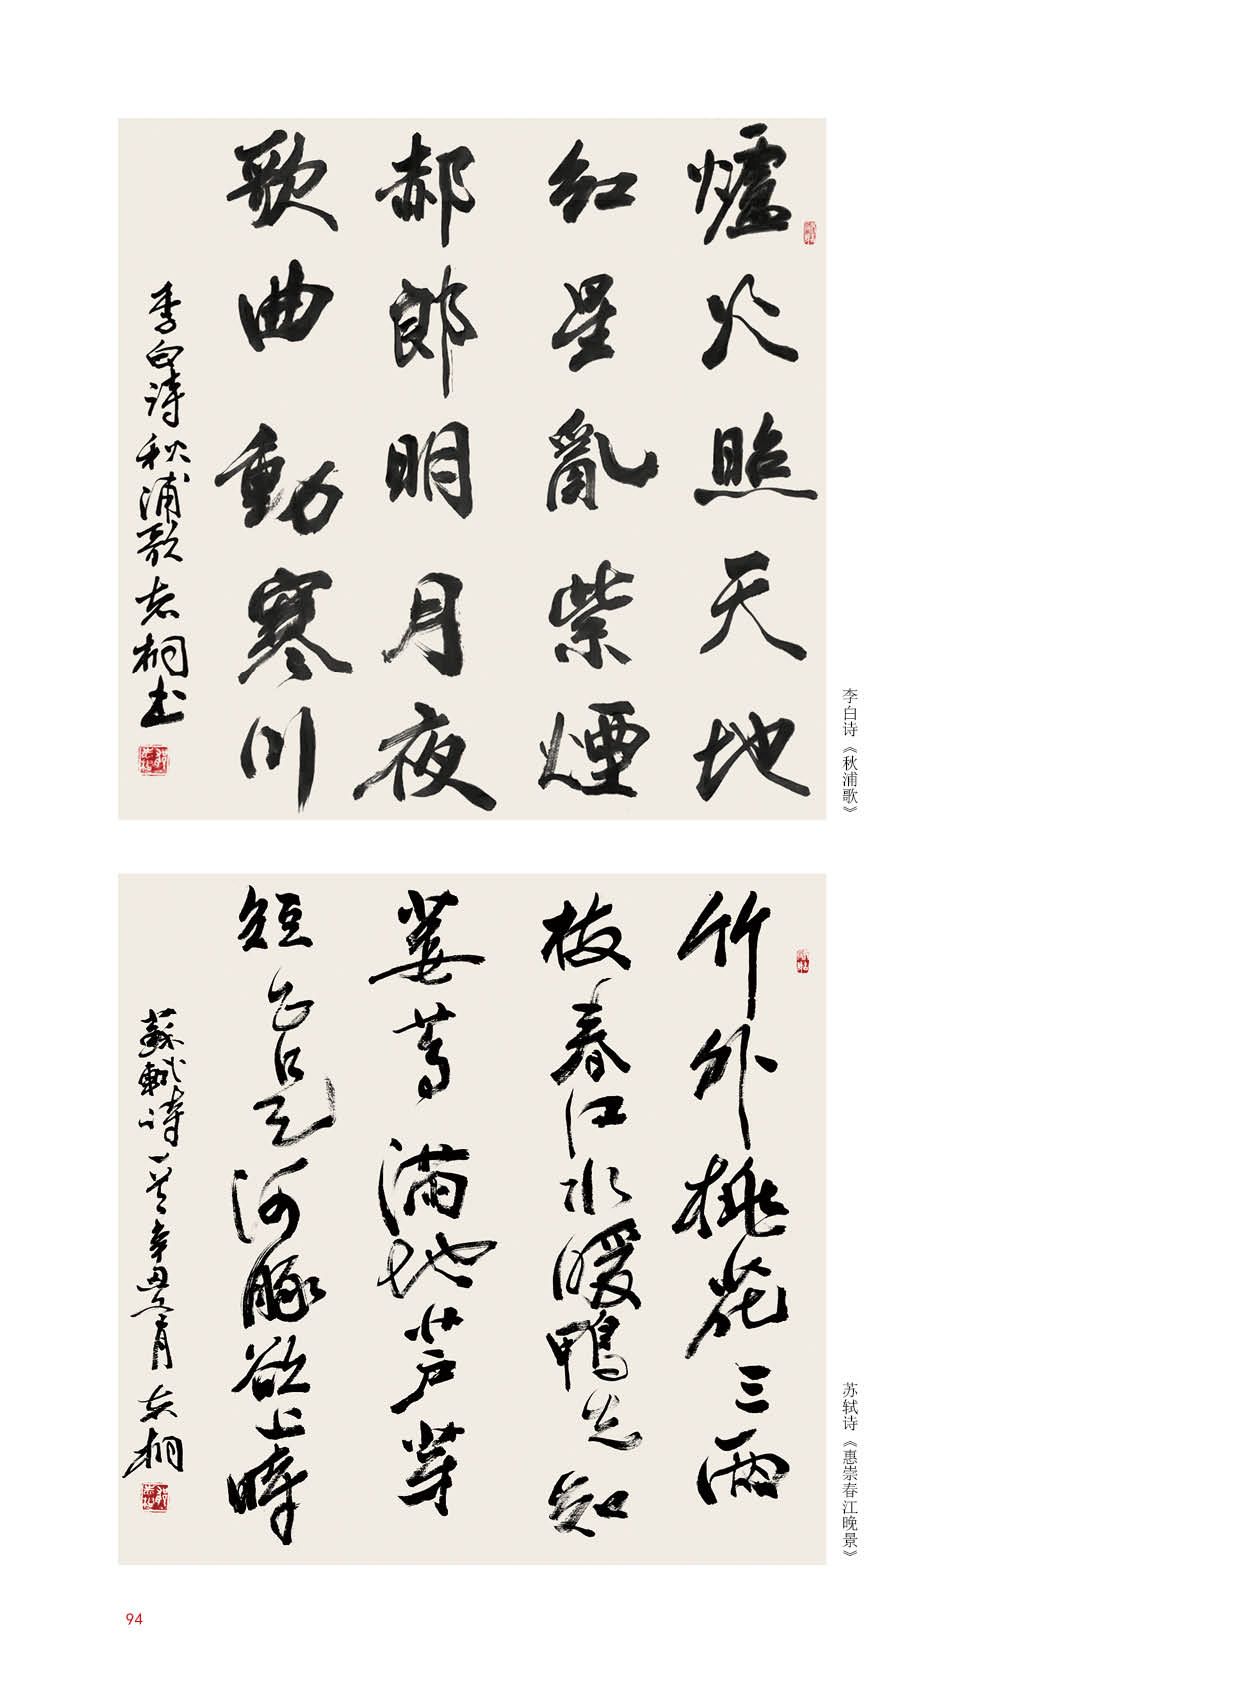 爐火照天地
紅星亂紫煙
郝郎明月夜
歌曲動寒川
李白詩秋浦歌志桐书
李白诗《秋浦歌》
竹外桃花三兩
枝春江水暖鴨先知
蔞蒿滿地芦芽
短正是河豚欲上時
蘇軾詩一首辛丑 志桐
苏轼诗《惠崇春江晚景》
94